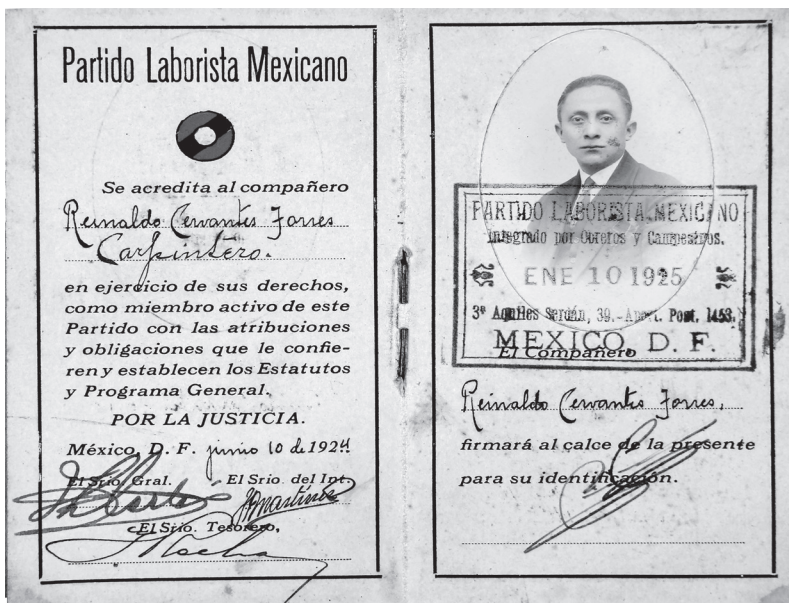 Partido Laborista Mexicano
Se acredita al compañero
Reinaldo Cervantes Torres
Carpintero.
en ejercicio de sus derechos,
como miembro activo de este
Partido con las atribuciones
y obligaciones que le confie-
ren y establecen los Estatutos
y Programa General.
POR LA JUSTICIA.
México, D. F. junio 10 de 1924.
El Srio. Gral. El Srio. del Int.
JMartínez
El Srio. Tesorero,
JRocha
PARTIDO LABORISTA MEXICANO
Integrado por Obreros y Campesinos.
ENE 10 1925
3ª Aquiles Serdán, 39.-Apart. Post. 1453.
MEXICO D. F.
El Compañero
Reinaldo Cervantes Torres,
firmará al calce de la presente
para su identificación.